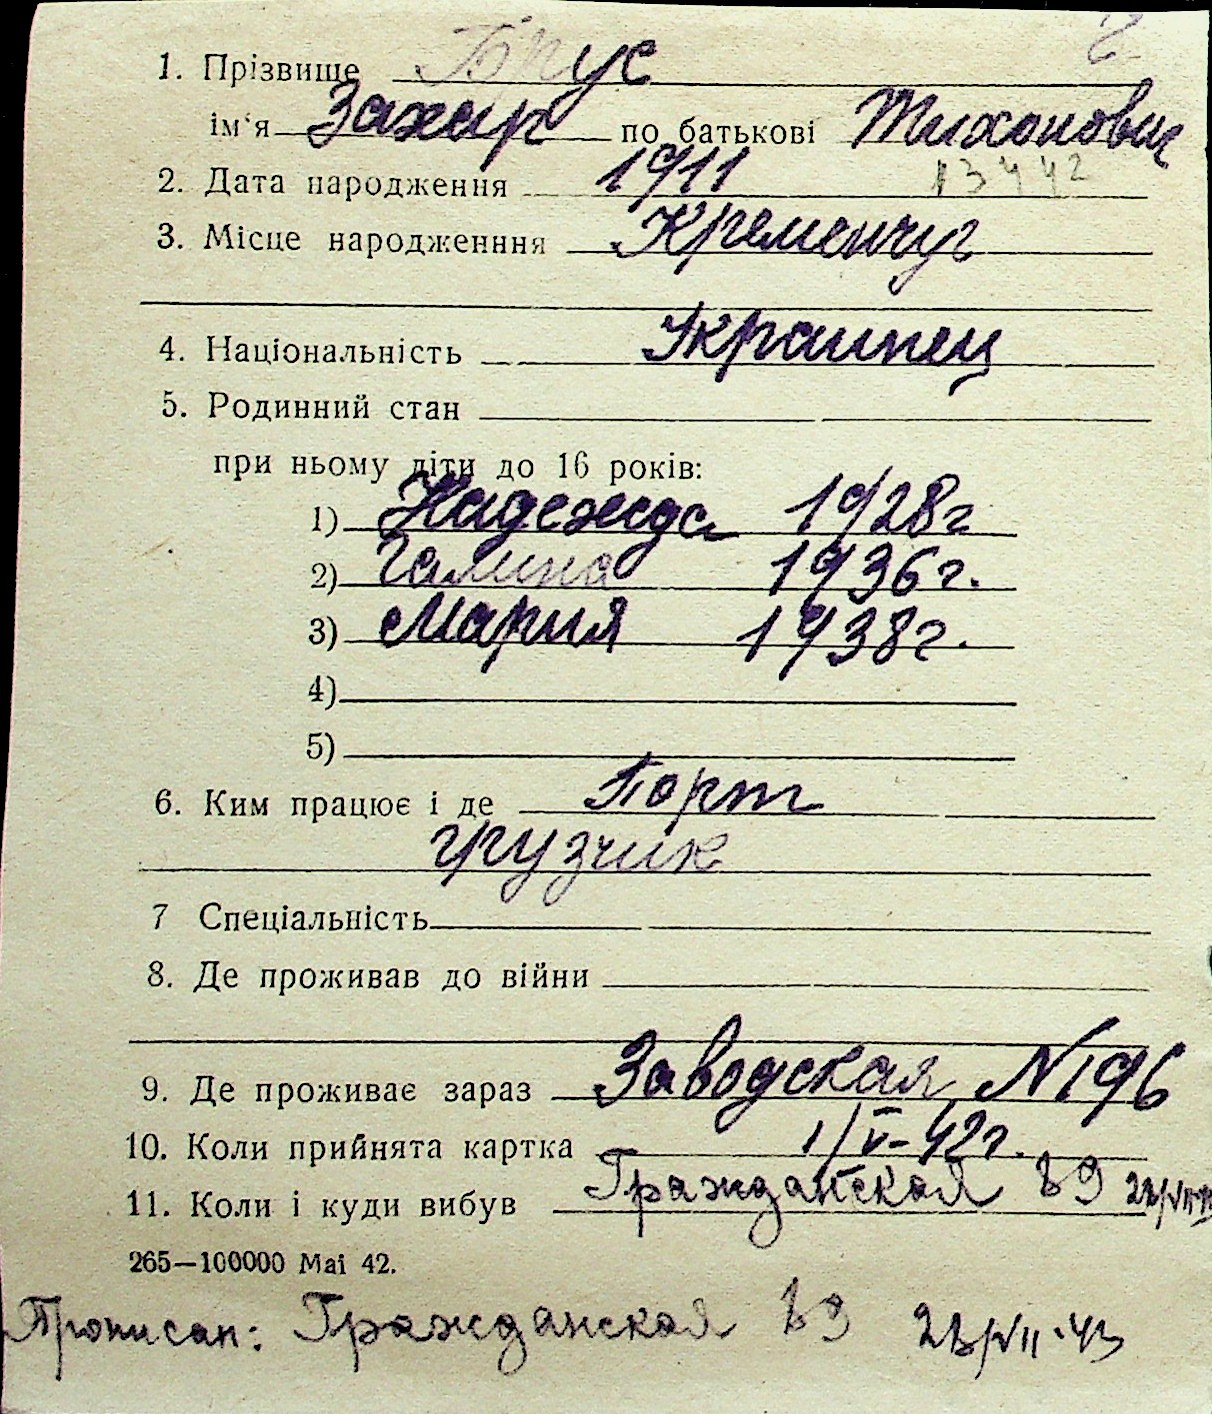 1. Прізвище Брус
ім'я Захар по батькові Тихонович
2. Дата народження 1911 13442
3. Місце народженння Кременчуг
4. Національність Украинец
5. Родинний стан
при ньому діти до 16 років:
1) Надежда 1928г
2) Галина 1936г.
3) Мария 1938г.
4)
5)
6. Ким працює і де Порт
грузчик
7 Спеціальність
8. Де проживав до війни
9. Де проживає зараз Заводская N196
10. Коли прийнята картка 1/V-42г.
11. Коли і куди вибув Гражданская
265—100000 Mai 42.
Прописан: Гражданская